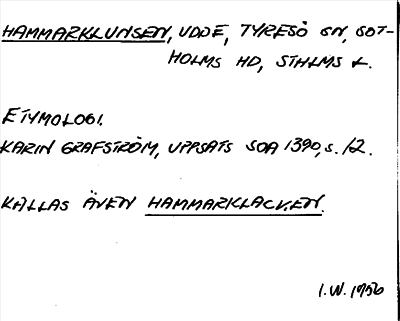 HAMMARKLUNSEN, UDDE, TYRESÖ SN, SOT-
HOLMS HD, STHLMS L.
ETYMOLOGI.
KARIN GRAFSTRÖM, UPPSATS SOA 1390, s. 12.
KALLAS ÄVEN HAMMARKLACKEN.
I.W. 1956